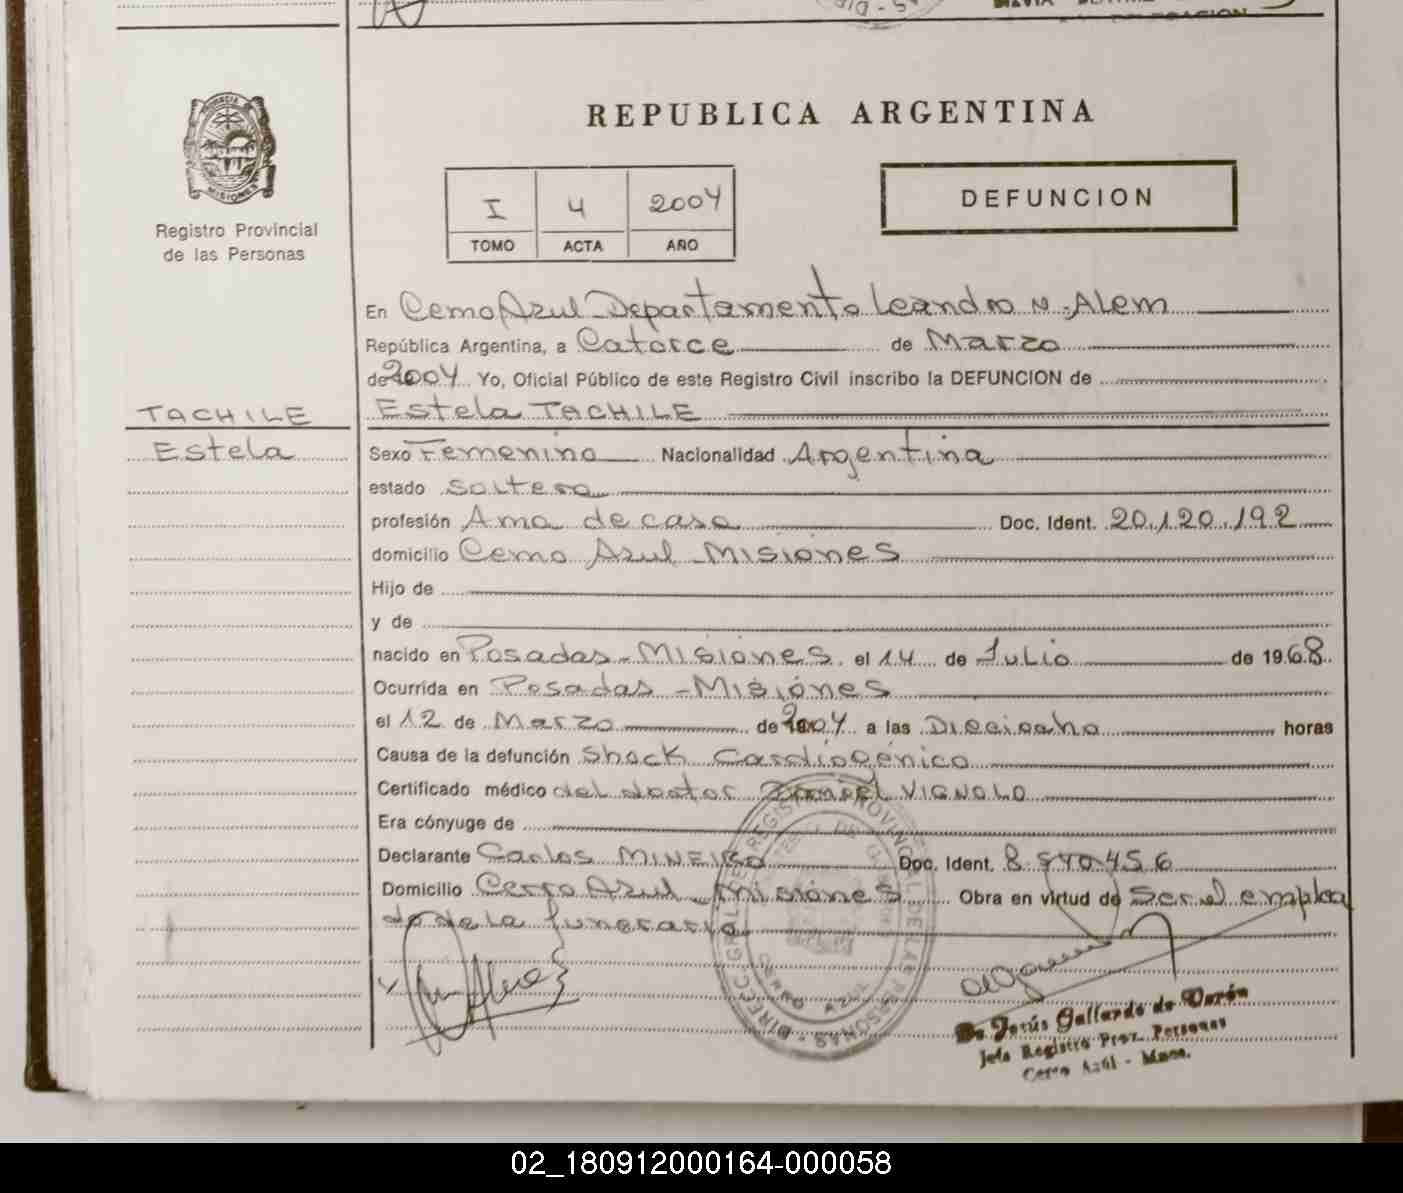 REPUBLICA ARGENTINA
PROVINCIA DE
MISIONES
Registro Provincial
de las Personas
I 4 2004
TOMO ACTA AÑO
DEFUNCION
En Cerro Azul Departamento Leandro N. Alem
República Argentina, a Catorce de Marzo
de 2004 Yo, Oficial Público de este Registro Civil inscribo la DEFUNCION de
TACHILE Estela TACHILE
Estela Sexo Femenino Nacionalidad Argentina
estado Soltera
profesión Ama de casa Doc. Ident. 20.120.192
domicilio Cerro Azul Misiones
Hijo de
y de
nacido en Posadas - Misiones. el 14 de Julio de 1968.
Ocurrida en Posadas - Misiones
el 12 de Marzo de 2004 a las Dieciocho horas
Causa de la defunción Shock Cardiogénico
Certificado médico del doctor Daniel VIGNOLO
Era cónyuge de
Declarante Carlos MINEIRO Doc. Ident. 8.970.456
Domicilio Cerro Azul - Misiones Obra en virtud de Ser el emplea
do de la funeraria
Jesús Gallardo de Durán
Jefa Registro Prov. Personas
Cerro Azúl - Mnes.
02_180912000164-000058